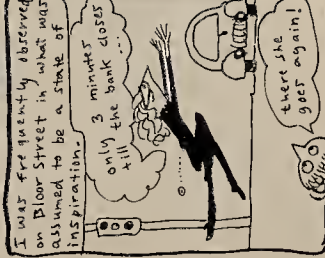 I was frequently observed
on Bloor Street in what was
assumed to be a state of
inspiration.
only 3 minutes
till the bank closes
...
there she
goes again!